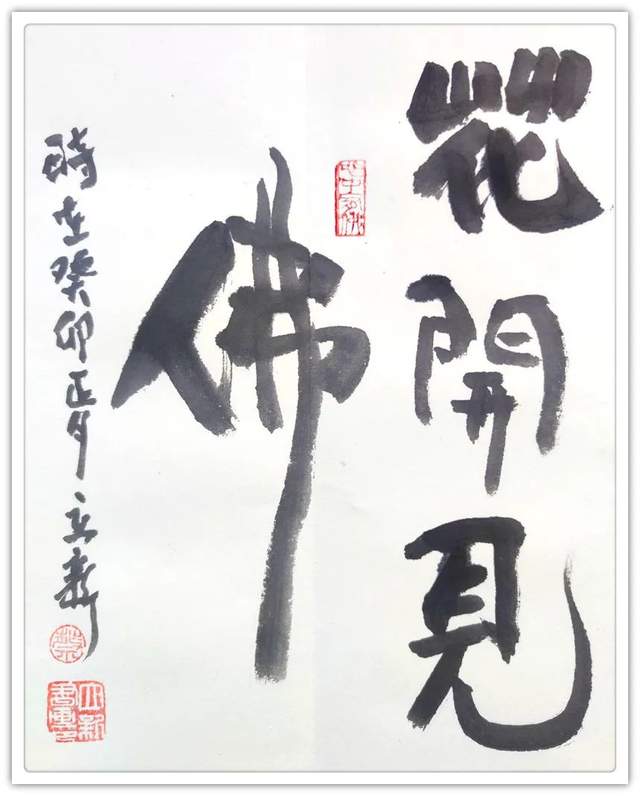 花開見
佛
時在癸卯正月立新